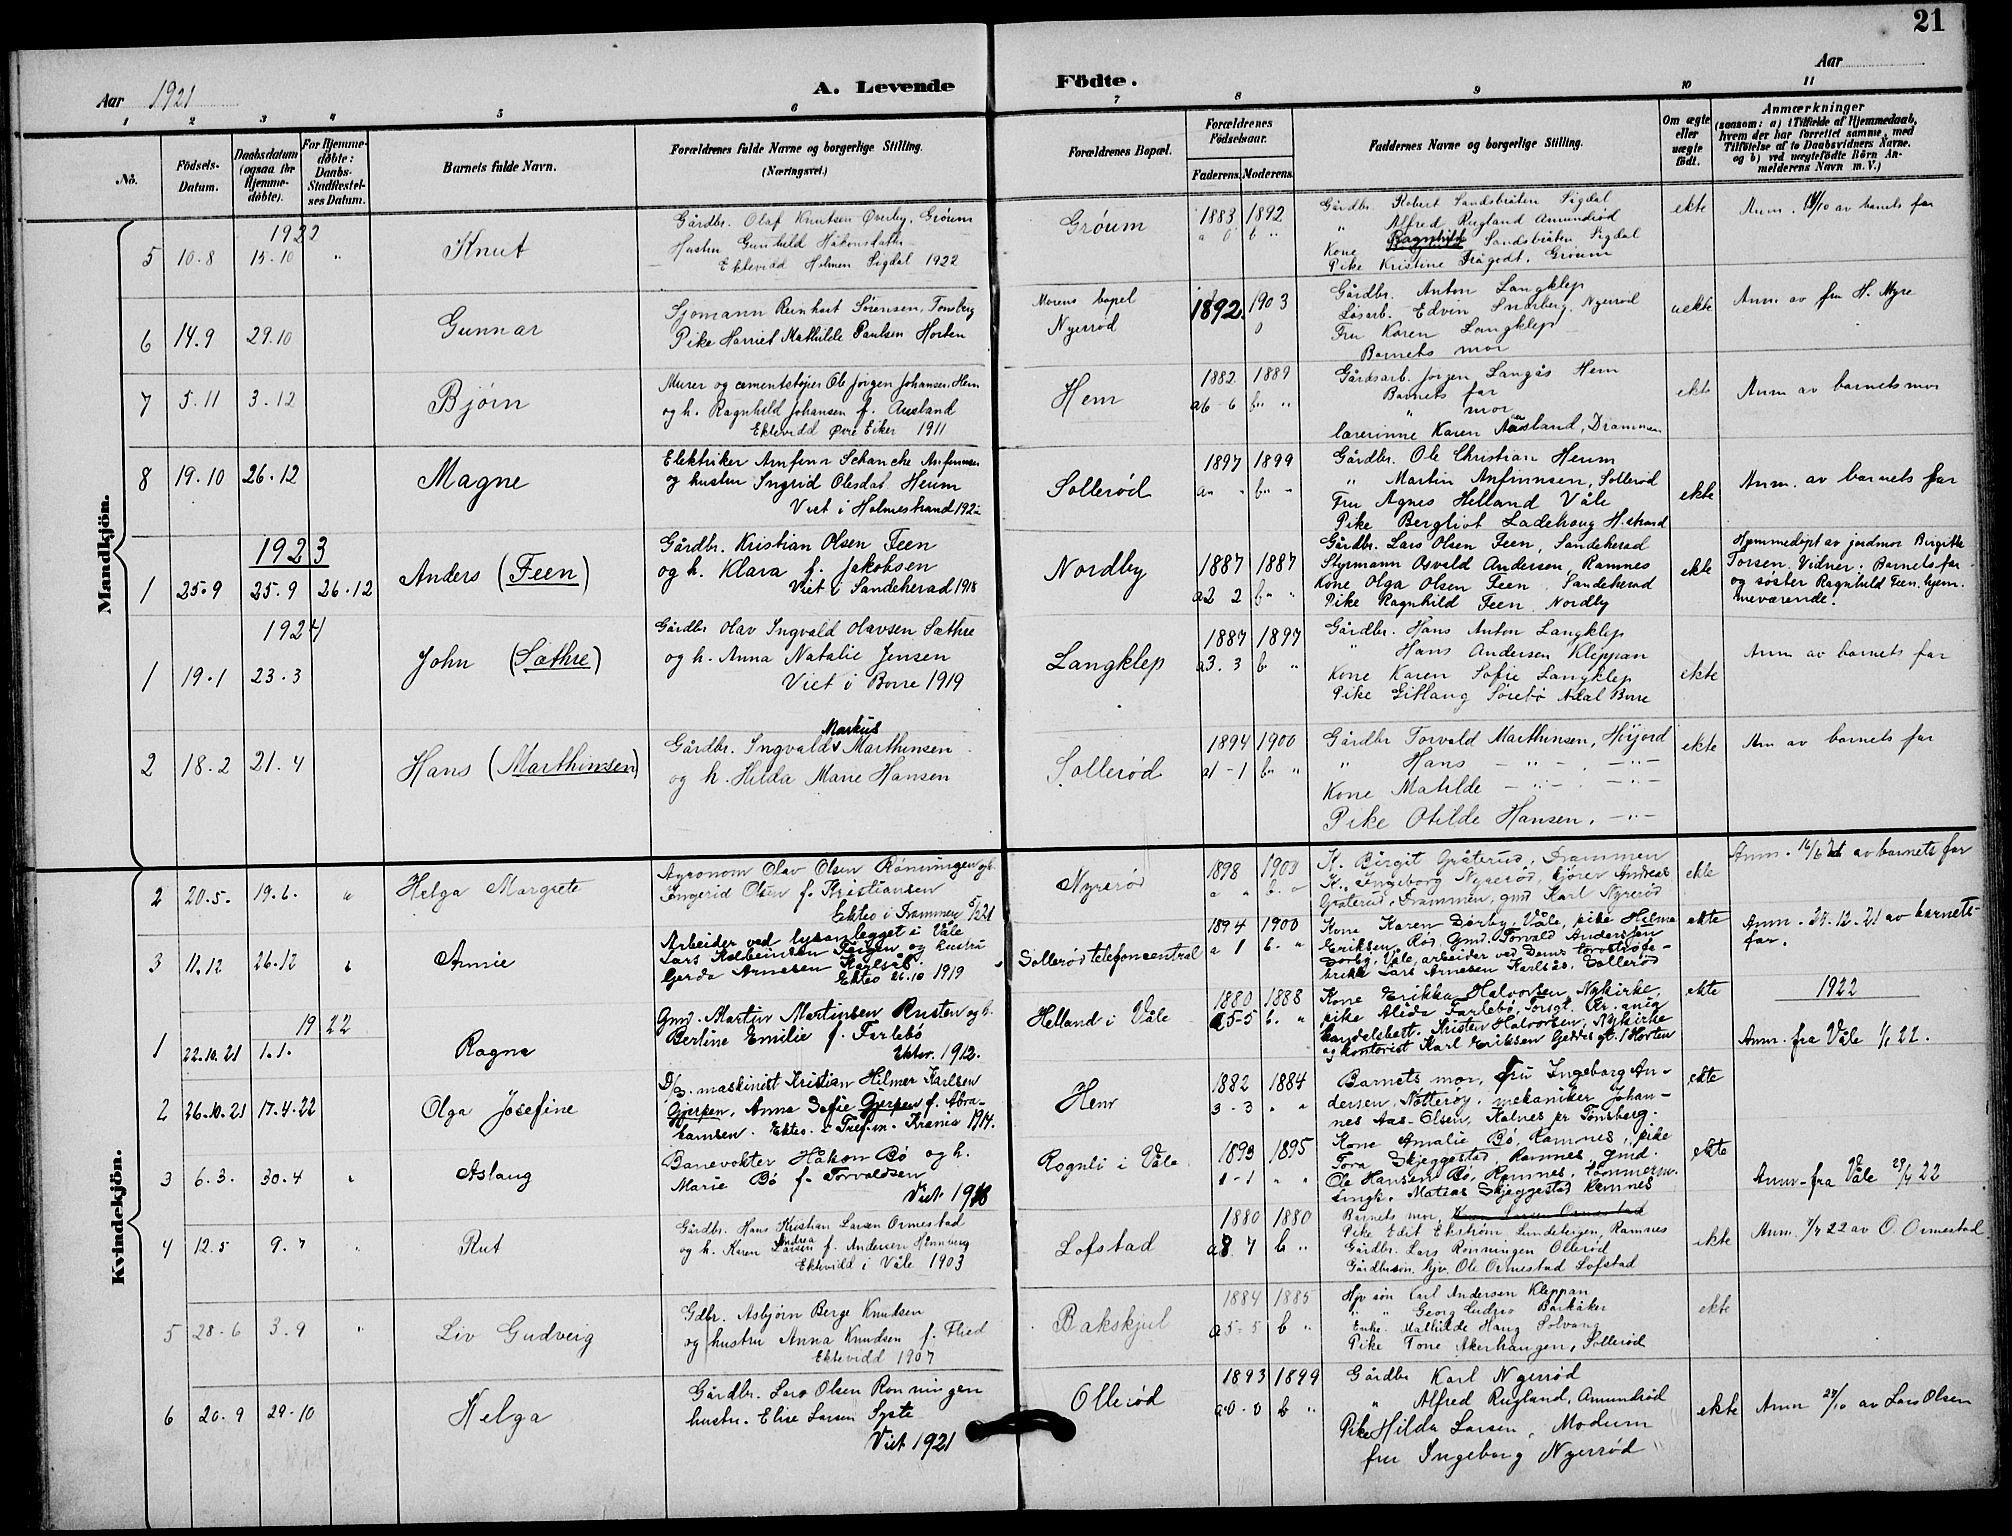 21
Aar 1921
A. Levende Födte.
Aar
1 2 3 4 5 6 7 8 9 10 11
Nö.
Födsels-Datum.
Daabsdatum (ogsaa for Hjemme-døbte).
For Hjemme-døbte: Daabs-Stadfæstel-ses Datum.
Barnets fulde Navn.
Forældrenes fulde Navne og borgerlige Stilling. (Næringsvei.)
Forældrenes Bopæl.
Forældrenes Födselsaar.
Faderens. Moderens.
Faddernes Navne og borgerlige Stilling.
Om ægte eller uægte født.
Anmærkninger
(saasom: a) i Tilfælde af Hjemmedaab, hvem der har forrettet samme, med Tilföielse af to Daabsvidners Navne. og b) ved uægtefödte Börn An-melderens Navn m. V.)
Mandkjön.
1922
5 10.8 15.10 " Knut
Gårdbr. Olaf Knutsen Øverby, Grøum
Hustru Gunhild Håkonsdatter
Ektevidd Holmen Sigdal 1922
Grøum
1883 1892
Gårdbr. Robert Sandsbråten Sigdal
" Alfred Rugland Amundrød
Kone Ragnhild Sandsbråten Sigdal
Pike Kristine Frågodt, Grøum
ekte
Anm. 14/10 av barnets far
6 14.9 29.10 Gunnar
Sjømann Reinhart Sørensen, Tønsberg
Pike Harriet Mathilde Paulsen Horten
Morens bopel
Nyerrød
1892 1903
Gårdbr. Anton Langklep
Løsarb. Edvin Snarberg, Nyerrød
Fru Karen Langklep
Barnets mor
uekte
Anm. av fru H. Myre
7 5.11 3.12 Bjørn
Murer og cementstøper Ole Jørgen Johansen, Hem
og h. Ragnhild Johansen f. Ausland
Ektevidd Øvre Eiker 1911
Hem
1882 1889
a 6-6 b " "
Gårdsarb. Jørgen Langås Hem
Barnets far
" mor
lærerinne Karen Ausland, Drammen
ekte
Anm av barnets mor
8 19.10 26.12 Magne
Elektriker Arnfinn Schanche Anfinnsen
og hustru Ingrid Olesdat. Heum
Viet i Holmestrand 192
Sollerød
1897 1899
Gårdbr. Ole Christian Heum
" Martin Anfinnsen, Sollerød
Fru Agnes Helland Våle
Pike Bergliot Ladehaug H.strand
ekte
Anm. av barnets far
1923
1 25.9 25.9 26.12 Anders (Feen)
Gårdbr. Kristian Olsen Feen
og h. Klara f. Jakobsen
Viet i Sandeherad 1918
Nordby
1887 1887
a 2 2 b " "
Gårdbr. Lars Olsen Feen, Sandeherad
Styrmann Osvald Andersen, Ramnes
Kone Olga Olsen Feen Sandeherad
Pike Ragnhild Feen Nordby
ekte
Hjemmedøpt av jordmor Birgitte
Torsen. Vidner: Barnets far
og søster Ragnhild Feen, hjem-
meværende.
1924
1 19.1 23.3 John (Sæthre)
Gårdbr Olav Ingvald Olavsen Sæthre
og h. Anna Natalie Jensen
Viet i Borre 1919
Langklep
1887 1897
a 3.3 b "
Gårdbr. Hans Anton Langklep
" Hans Andersen Kleppan
Kone Karen Sofie Langklep
Pike Gitlaug Sørebø Adal Borre
ekte
Anm av barnets far
2 18.2 21.4 Hans (Marthinsen)
Markus
Gårdbr. Ingvald Marthinsen
og h. Hilda Marie Hansen
Sollerød
1894 1900
a 1-1 b " "
Gårdbr Torvald Marthinsen, Höijord
" Hans - " - . - " -
Kone Matilde - " - - " -
Pike Otilde Hansen. - " -
ekte
Am av barnets far
Kvindekjön.
2 20.5. 19.6. " Helga Margrete
Agronom Olav Olsen Rønningen og h.
Ingerid Olsen f. Kristiansen
Ektev i Drammen 5/2 21
Nyrerød
1898 1903
K. Birgit Gråterud, Drammen
K. Ingeborg Nyrerød, kjører Andreas
Gråterud, Drammen, gmd Karl Nyrerød
ekte
Anm. 16/6 21 av barnets far
3 11.12 26.12 " Annie
Arbeider ved lysanlegget i Våle
Lars Kolbeinsen Teigen og hustru
Gerda Arnesen Karlsås.
Ektev 26.10 1919
Sollerød telefoncentral
1894 1900
a 1 b. "
Kone Karen Sørby, Våle, pike Hilma
Eriksen, Rød. Gmd. Torvald Andersen
Sørby, Våle, arbeider ved Sems torvstrøfa-
brikk Lars Arnesen Karlsås, Sollerød
ekte
Anm. 25.12.21 av barnets-
far.
1922
1 22.10.21 1.1. Ragna
Gmd. Martin Martinsen Rusten og h.
Bertine Emilie f. Farlebø
Ektev. 1912.
Helland i Våle
1880 1888
a 5-5 b. "
Kone Erikka Halvorsen, Nykirke,
pike Alida Farlebø, Torsgt. Kr.ania
handelsbett. Kristen Halvorsen, Nykirke
og kontorist Karl Eriksen Geddesgt. 1 Horten
ekte
1922
Anm. fra Våle 1/1 22.
2 26.10.21 17.4.22 Olga Josefine
D/S. maskinist Kristian Hilmer Karlsen
Gjerpen, Anna Sofie Gjerpen f. Abra-
hamsen. Ektev. i Tref.m. Krania 1914.
Hem
1882 1884
3-3 " "
Barnets mor, Fru Ingeborg An-
dersen, Nøtterøy, mekaniker Johan-
nes Aas-Olsen, Kalnes pr Tønsberg.
ekte
3 6.3. 30.4 " Aslaug
Banevokter Håkon Bø og h.
Marie Bø f. Torvaldsen
Viet 1918
Rognli i Våle
1893 1895
1-1 " "
Kone Amalie Bø, Ramnes, pike
Tora Skjeggestad Ramnes, gmd.
Ole Hansen Bø, Ramnes, tømmerm.
Matias Skjeggestad Ramnes
ekte
Anm. fra Våle 29/4 22
4 12.5 9.7 " Rut
Gårdbr. Hans Kristian Larsen Ormestad
Andrea
og h. Karen Larsen f. Andersen
Ektevidd i Våle 1903
Lofstad
1880 1880
a 8 7 b "
Barnets mor,
Pike Edit Ekstrøm, Lundeteigen, Ramnes
Gårdbr. Lars Rønningen Ollerød
Gårdbrsøn, hjv. Ole Ormestad Lofstad
ekte
Anm. 7/7 22 av O. Ormestad.
5 28-6 3.9 " Liv Gudveig
Gdbr. Asbjørn Berge Knudsen
og hustru Anna Knudsen f. Flied
Ektevidd 1907
Bakskjul
1884 1885
a 5-5 b "
Hjv. søn Carl Andersen Kleppan
" " Georg Barkåker
Enke. Mathilde Haug Solvang
Pike Tone Akerhaugen, Sollerød
ekte
6 20.9 29-10 Helga
Gårdbr. Lars Olsen Rønningen
hustru. Elise Larsen Syste
Viet 1921
Ollerød
1893 1899
a 0-0 b "
Gårdbr Karl Nyerrød
" Alfred Rugland, Amundrød
Pike Hilda Larsen, Modum
fru Ingeborg Nyerrød
ekte
Anm 24/10 av Lars Olsen